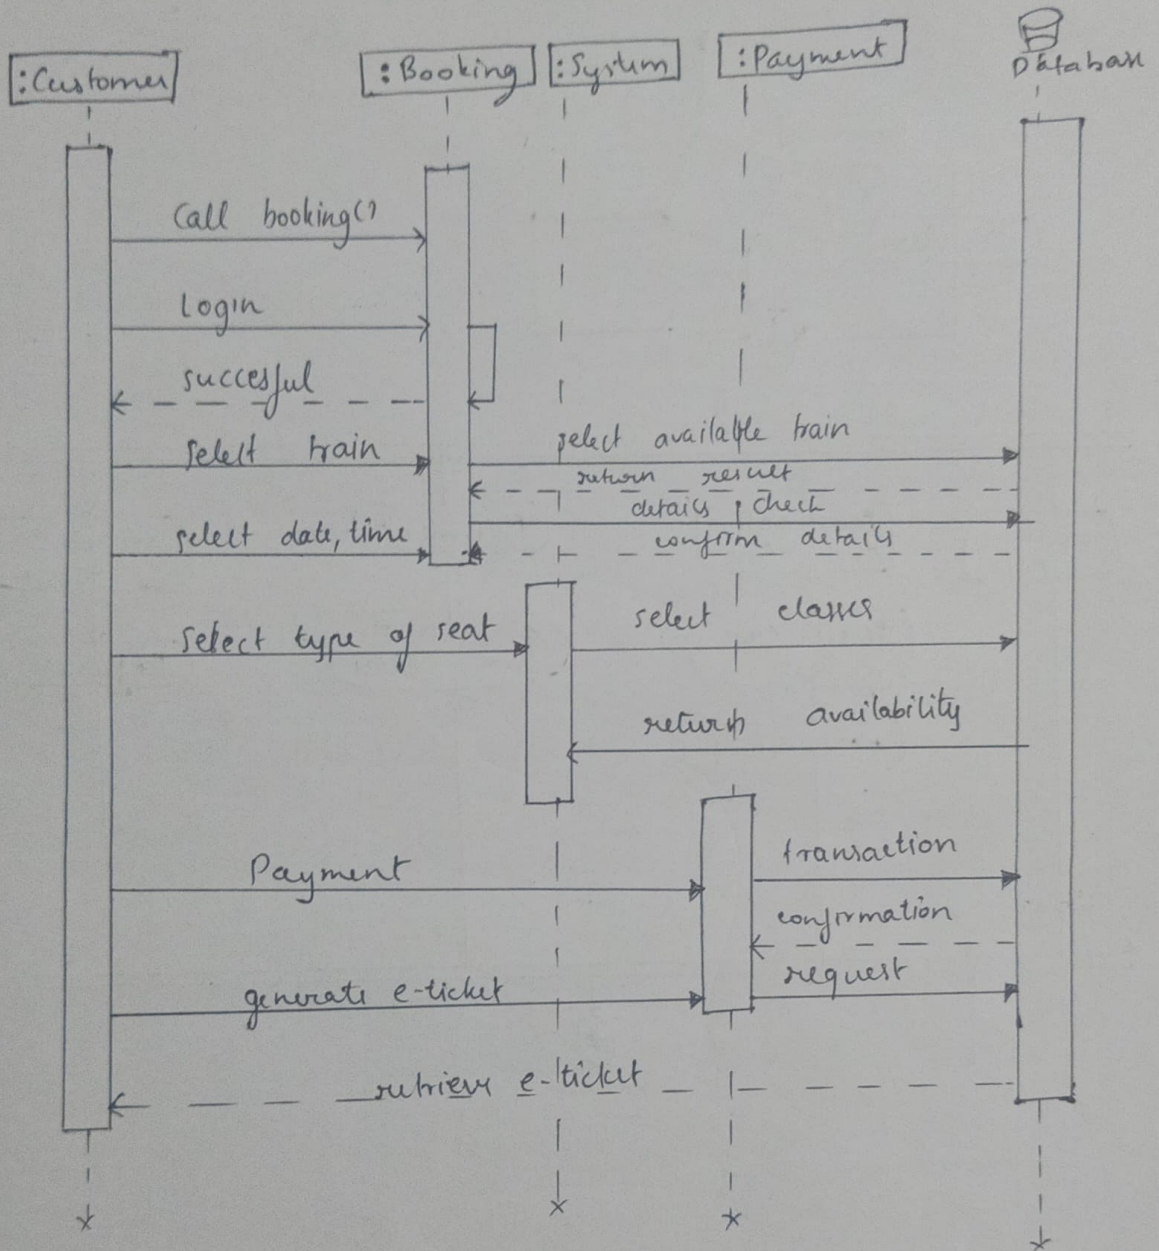 :Customer
:Booking
:System
:Payment
Database
Call booking()
Login
succesful
select train
select available train
return result
details check
select date, time
confirm details
select type of seat
select classes
return availability
Payment
transaction
confirmation
generate e-ticket
request
retrieve e-ticket